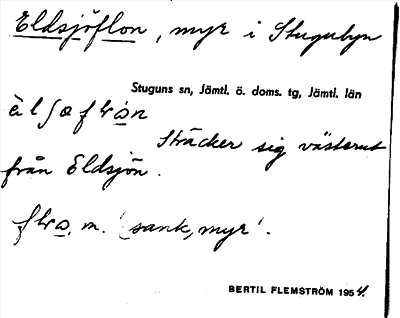 Eldsjöflon, myr i Stugubyn
Stuguns sn, Jämtl. ö. doms. tg, Jämtl. län
Sträcker sig västerut
från Eldsjön.
m. '(sank, myr'.
BERTIL FLEMSTRÖM 1954.